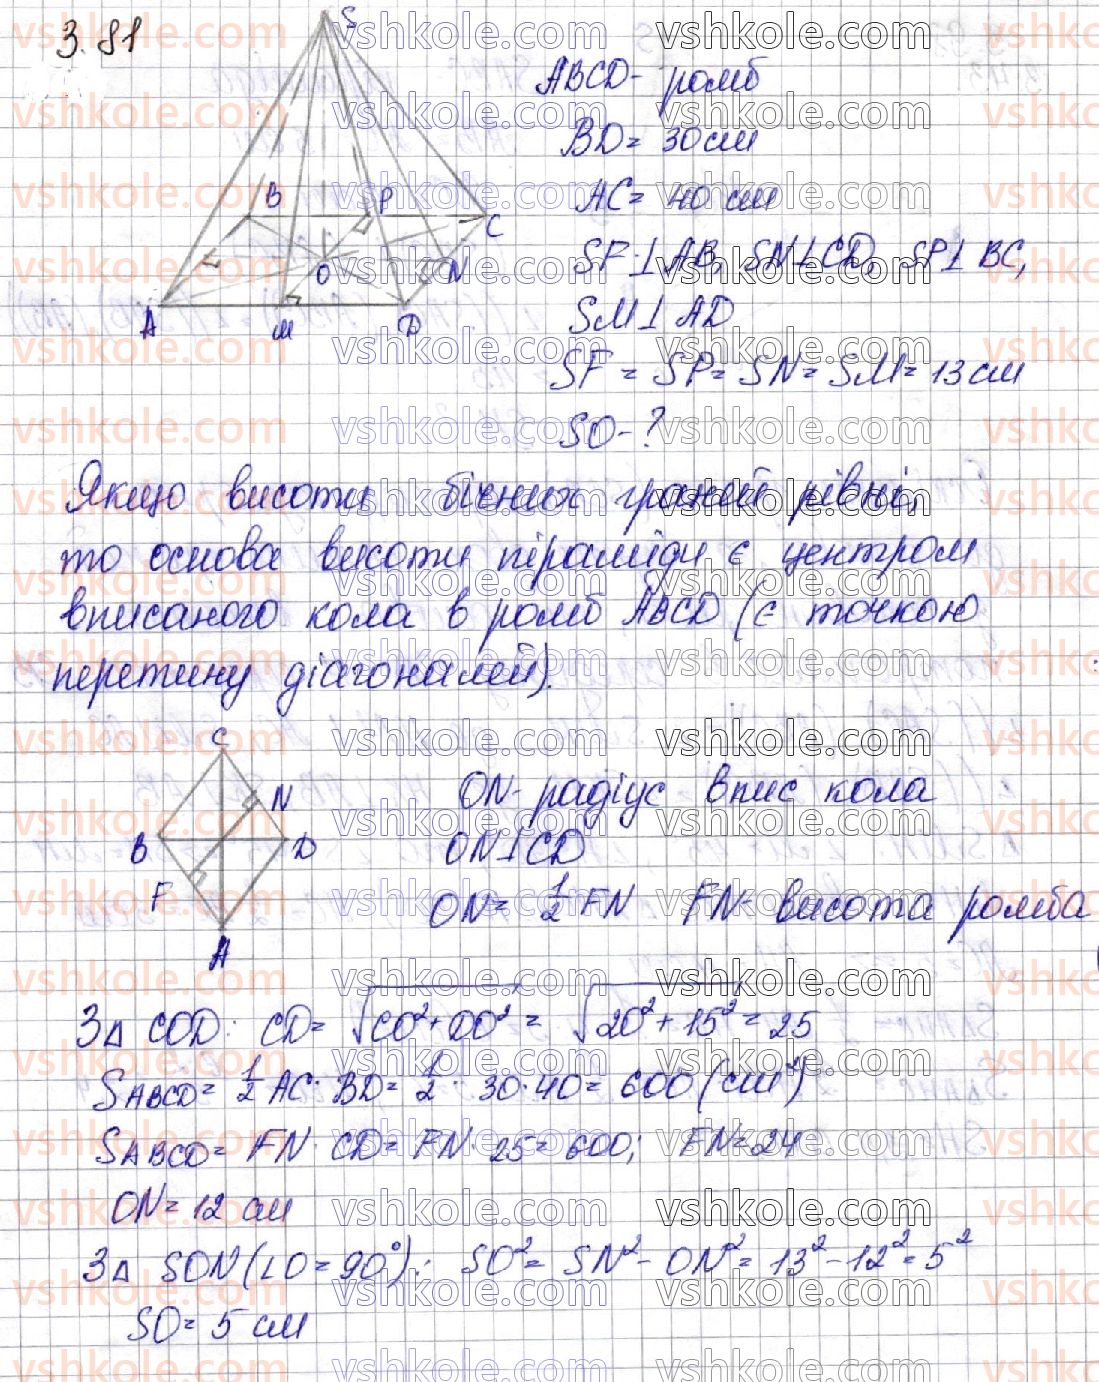 3.81
S
B
P
C
O
N
A
M
D
ABCD- ромб
BD= 30 см
AC= 40 см
SF⊥AB, SN⊥CD, SP⊥BC,
SM⊥AD
SF = SP= SN= SM= 13 см
SO-?
Якщо висоти бічних граней рівні,
то основа висоти піраміди є центром
вписаного кола в ромб ABCD (є точкою
перетину діагоналей).
C
N
B
D
F
A
ON- радіус впис кола
ON⊥CD
ON= 1/2 FN FN- висота ромба
З Δ COD: CD= √CO²+OD² = √20²+15² = 25
SABCD= 1/2 AC· BD= 1/2 · 30·40= 600 (см²)
SABCD= FN· CD= FN· 25= 600; FN= 24
ON= 12 см
З Δ SON(∠O=90°): SO²= SN²- ON²= 13²-12²= 5²
SO= 5 см
vshkole.com